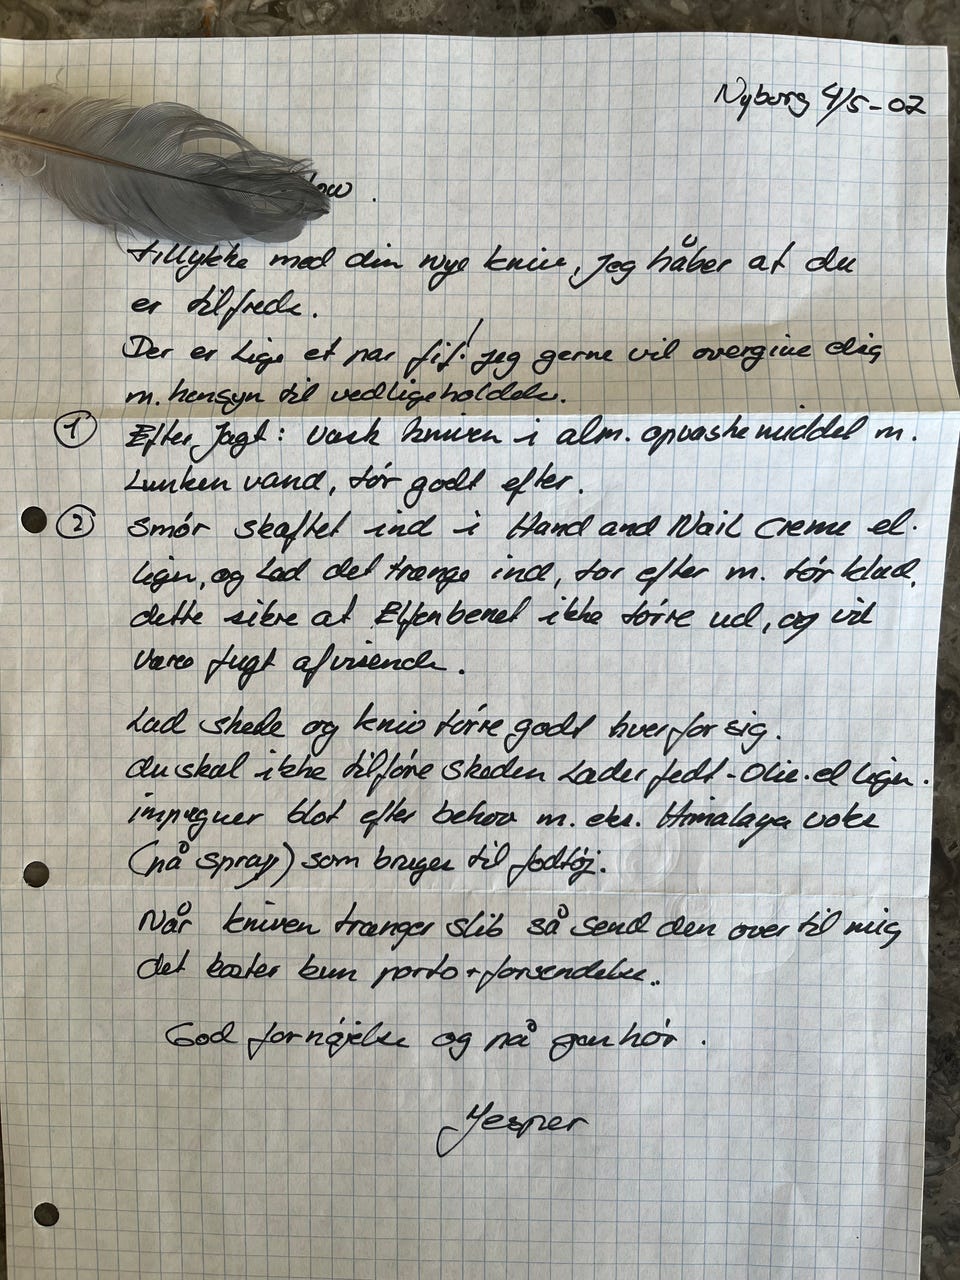 Nyborg 4/5-02
tillykke med din nye kniv, jeg håber at du
er tilfreds.
Der er lige et par fif! jeg gerne vil overgive dig
m. hensyn til vedligeholdelse.
① Efter jagt: vask kniven i alm. opvaskemiddel m.
Lunken vand, tór godt efter.
② smór skaftet ind i Hand and Nail Creme el.
lign, og Lad det trænge ind, tor efter m. tór klud,
dette sikre at Elfenbenet ikke tórre ud, og vil
være fugt afvisende.
Lad skede og kniv tórre godt hver for sig.
du skal ikke tilfóre skeden Læder fedt - Olie. el lign.
impregner blot efter behov m. eks. Himalaya voks
(på spray) som bruges til fodtój.
Når kniven trænger slib så send den over til mig
det koster kun porto + forsendelse..
God fornójelse og på genhór.
Jesper